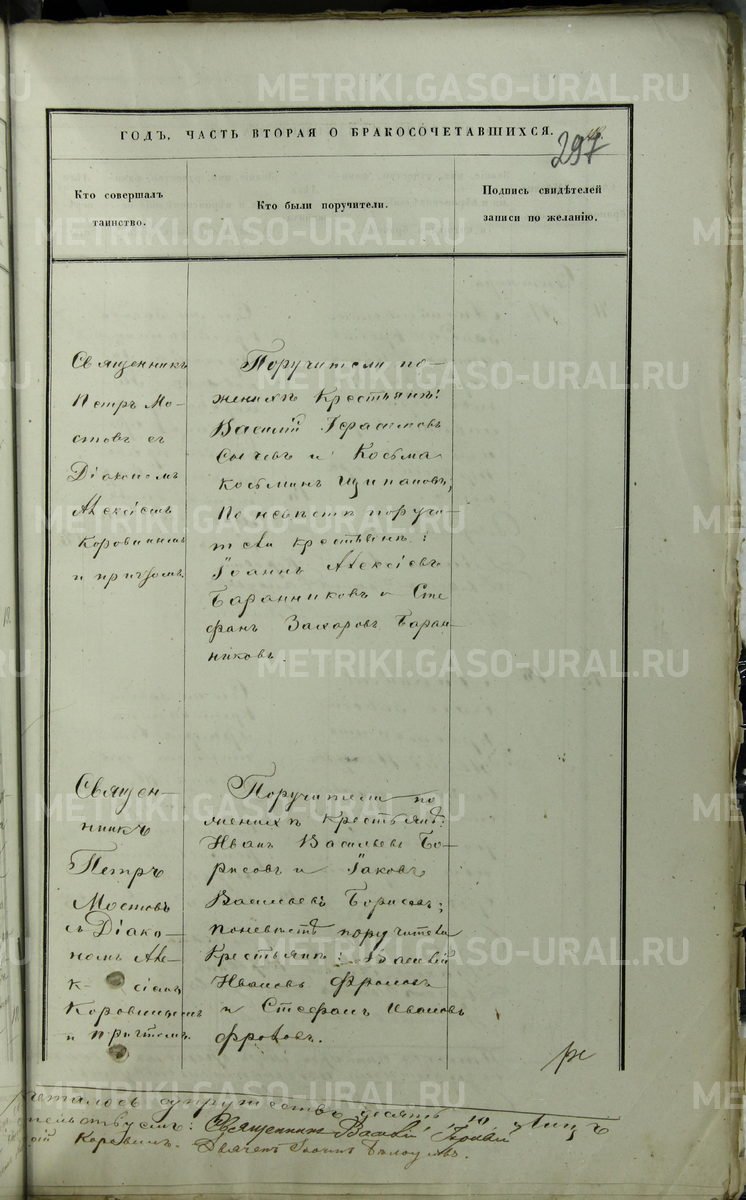 METRIKI.GASO-URAL.RU
ГОДЪ, ЧАСТЬ ВТОРАЯ О БРАКОСОЧЕТАВШИХСЯ.
297
Кто совершалъ
таинство.
Кто были поручители.
Подпись свидѣтелей
записи по желанію.
Священникъ
Петръ Мо-
стовъ съ
Діакономъ
Алексіемъ
Коровинымъ
и причтомъ.
Поручители по
женихѣ крестьяне:
Василій
Сычевъ и Косьма
Косьминъ Щипановъ;
По невѣстѣ поручи-
тели крестьяне:
Іоаннъ Алексіевъ
Баранниковъ и Сте
фанъ Захаровъ Баран-
никовъ.
Священ-
никъ
Петръ
Мостовъ
съ Діако-
номъ Але-
ксіемъ
Коровинымъ
и причтомъ.
Поручители по
женихѣ крестьяне:
Иванъ Васильевъ Бо-
рисовъ и Іаковъ
Васильевъ Борисовъ;
по невѣстѣ поручители
крестьяне: Василій
Ивановъ Фроловъ
и Стефанъ Ивановъ
Фроловъ.
супружествъ десять 10.
Священникъ Василій
Коровинъ.